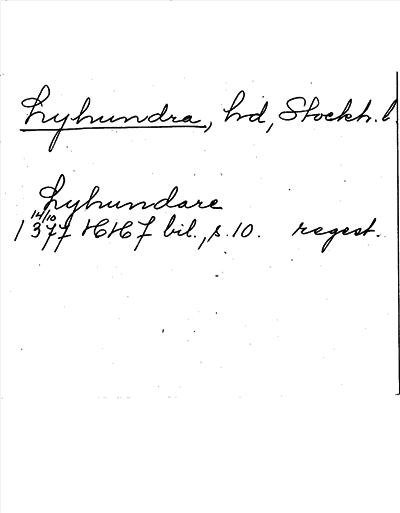 Lyhundra, hd, Stockh. l.
Lyhundare
14/10
1377 HHF bil., s. 10. regest.